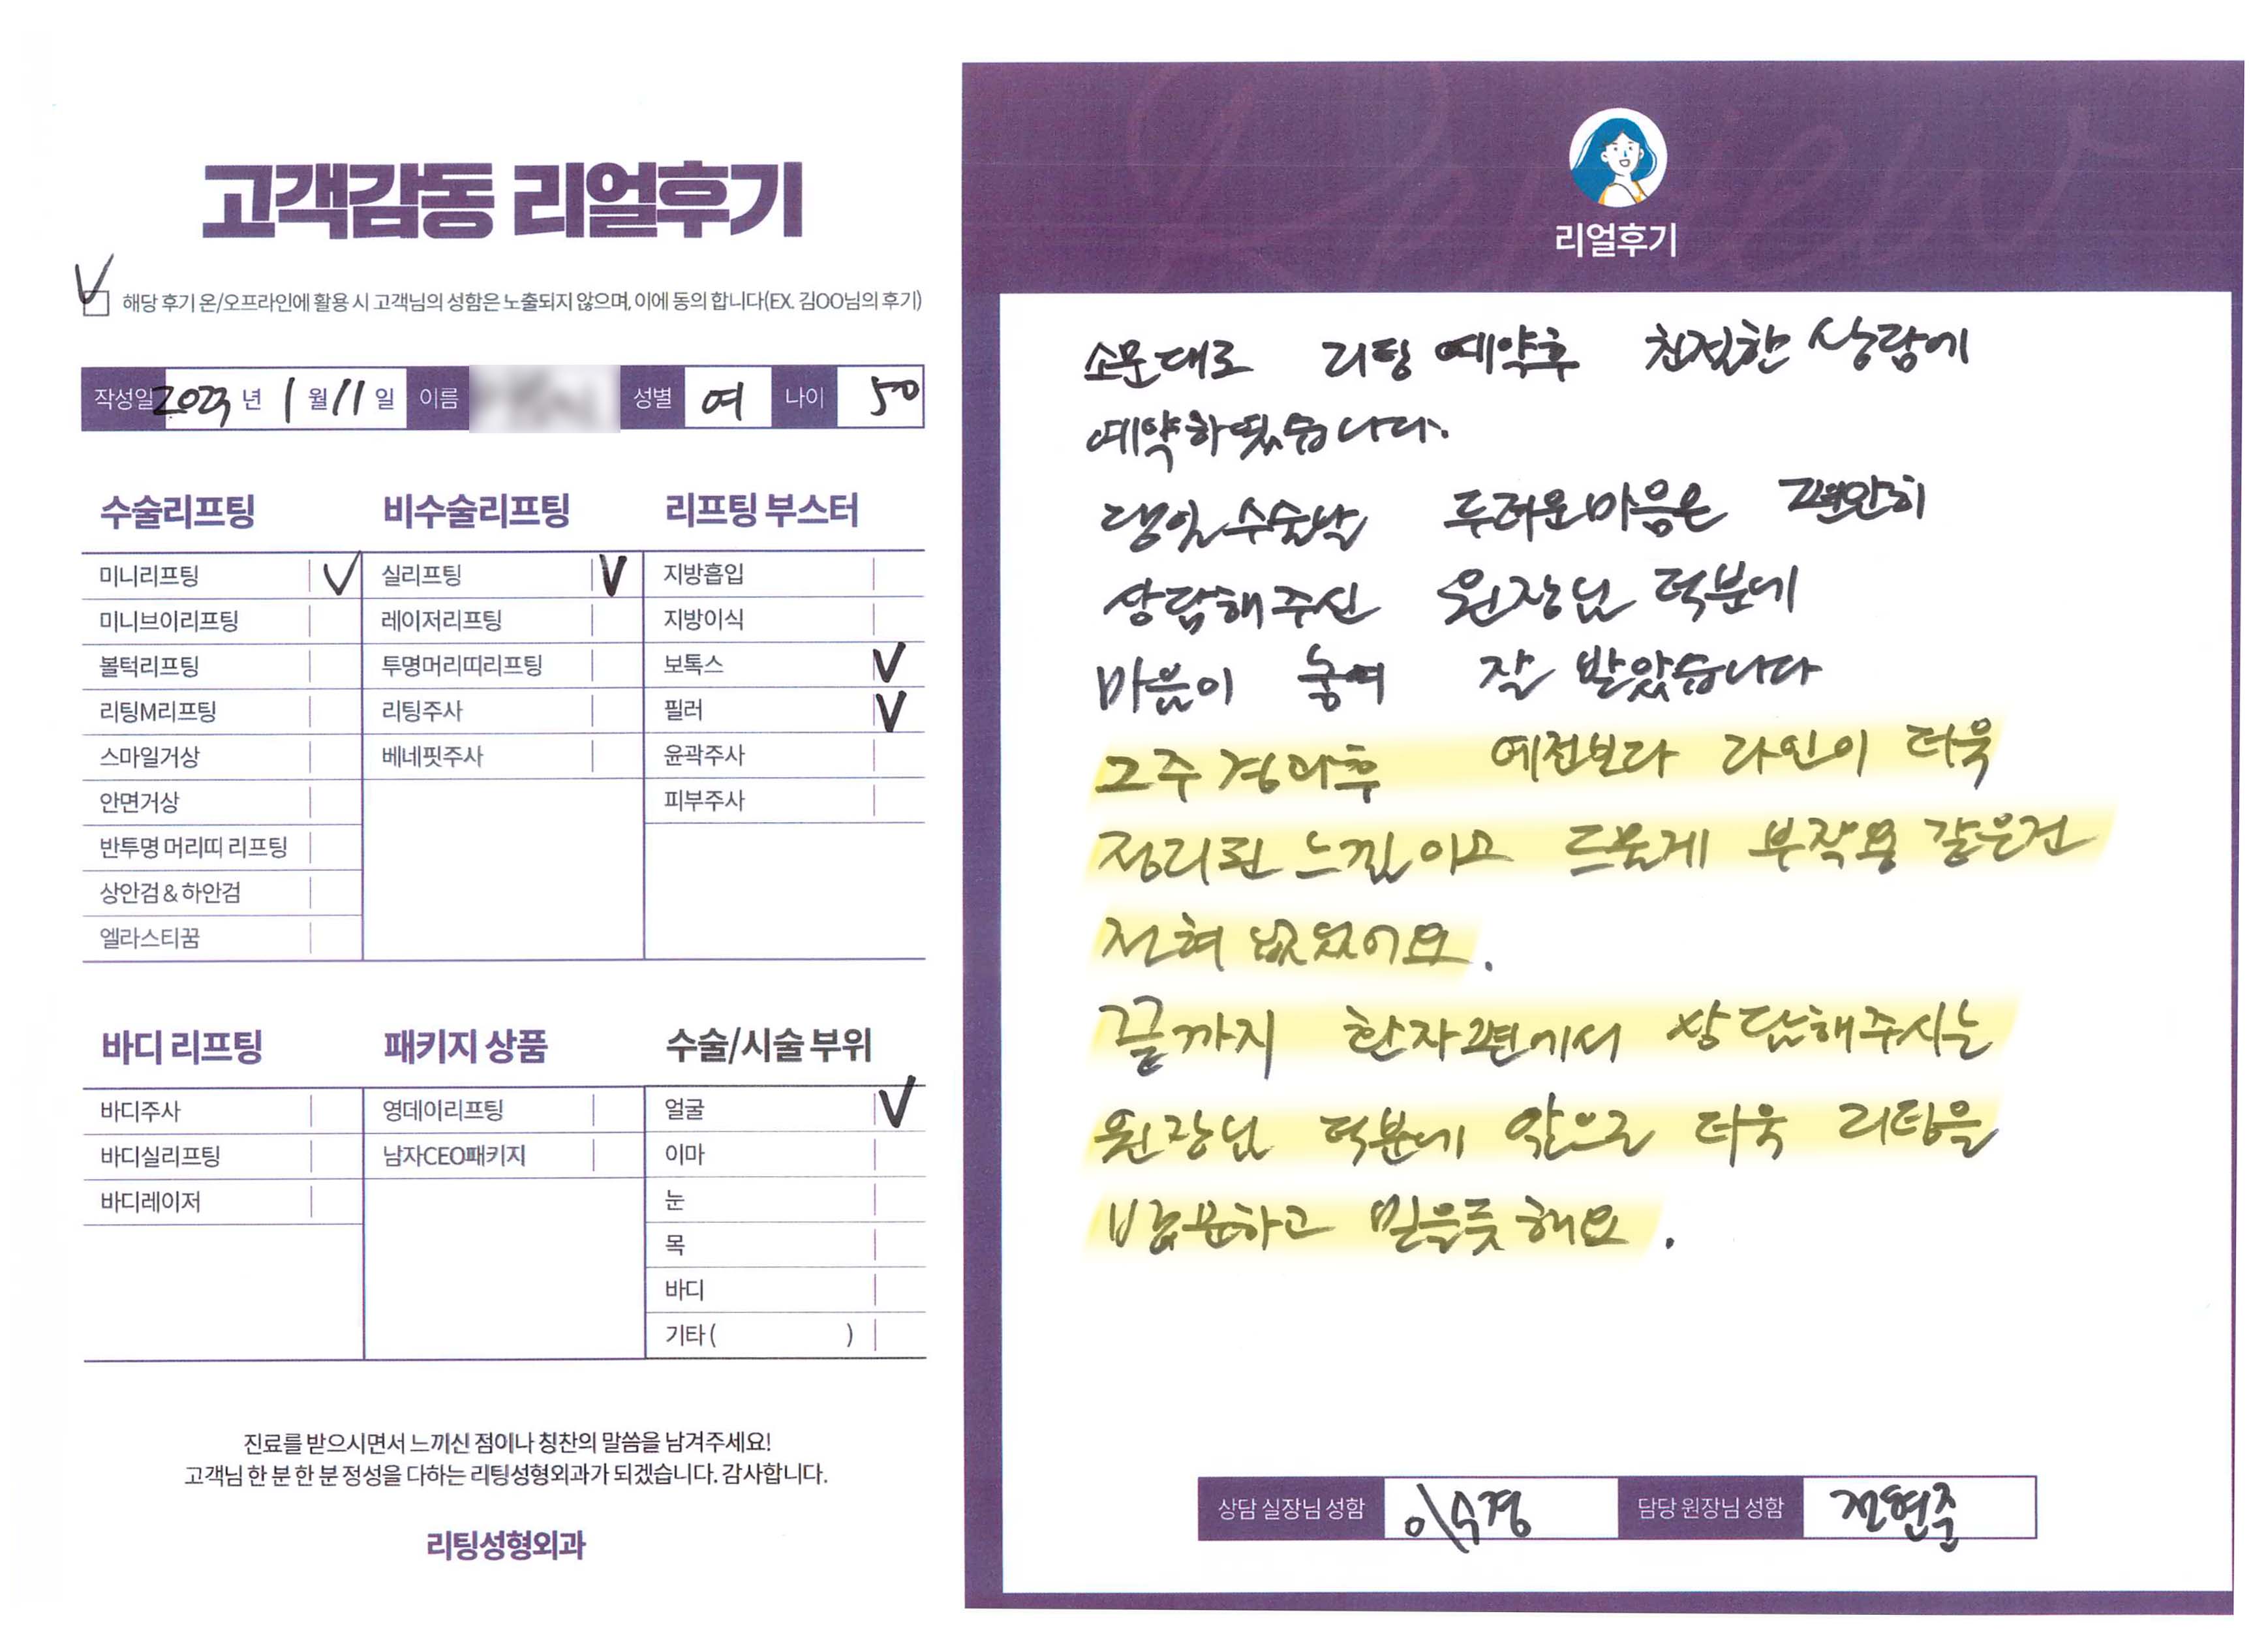 고객감동 리얼후기
해당 후기 온/오프라인에 활용 시 고객님의 성함은 노출되지 않으며, 이에 동의 합니다(EX. 김OO님의 후기)
작성일 2023 년 1 월 11 일 이름 성별 여 나이 50
수술리프팅 비수술리프팅 리프팅 부스터
미니리프팅 V 실리프팅 V 지방흡입
미니브이리프팅 레이저리프팅 지방이식
볼턱리프팅 투명머리띠리프팅 보톡스 V
리팅M리프팅 리팅주사 필러 V
스마일거상 베네핏주사 윤곽주사
안면거상 피부주사
반투명 머리띠 리프팅
상안검 & 하안검
엘라스티꿈
바디 리프팅 패키지 상품 수술/시술 부위
바디주사 영데이리프팅 얼굴 V
바디실리프팅 남자CEO패키지 이마
바디레이저 눈
목
바디
기타 ( )
진료를 받으시면서 느끼신 점이나 칭찬의 말씀을 남겨주세요!
고객님 한 분 한 분 정성을 다하는 리팅성형외과가 되겠습니다. 감사합니다.
리팅성형외과
Review
리얼후기
소문대로 리팅 예약후 친절한 상담에
예약하였습니다.
당일 수술날 두려운마음은 편안히
상담해주신 원장님 덕분에
마음이 놓여 잘 받았습니다
2주 경과후 예전보다 라인이 더욱
정리된 느낌이고 드물게 부작용 같은건
전혀 없었어요.
끝까지 환자편에서 상담해주시는
원장님 덕분에 앞으로 더욱 리팅을
방문하고 믿을듯 해요.
상담 실장님 성함 이수경 담당 원장님 성함 전현주